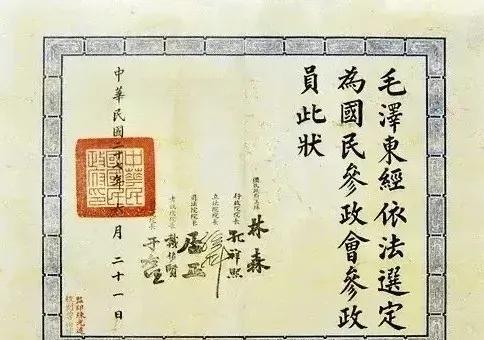 毛澤東經依法選定
為國民參政會參政
員此狀
國民政府主席 林森
行政院院長 孔祥熙
立法院院長
司法院院長 居正
考試院院長 戴傳賢
院長 于右
中華民國二十七年六月二十一日
監印陳光遠